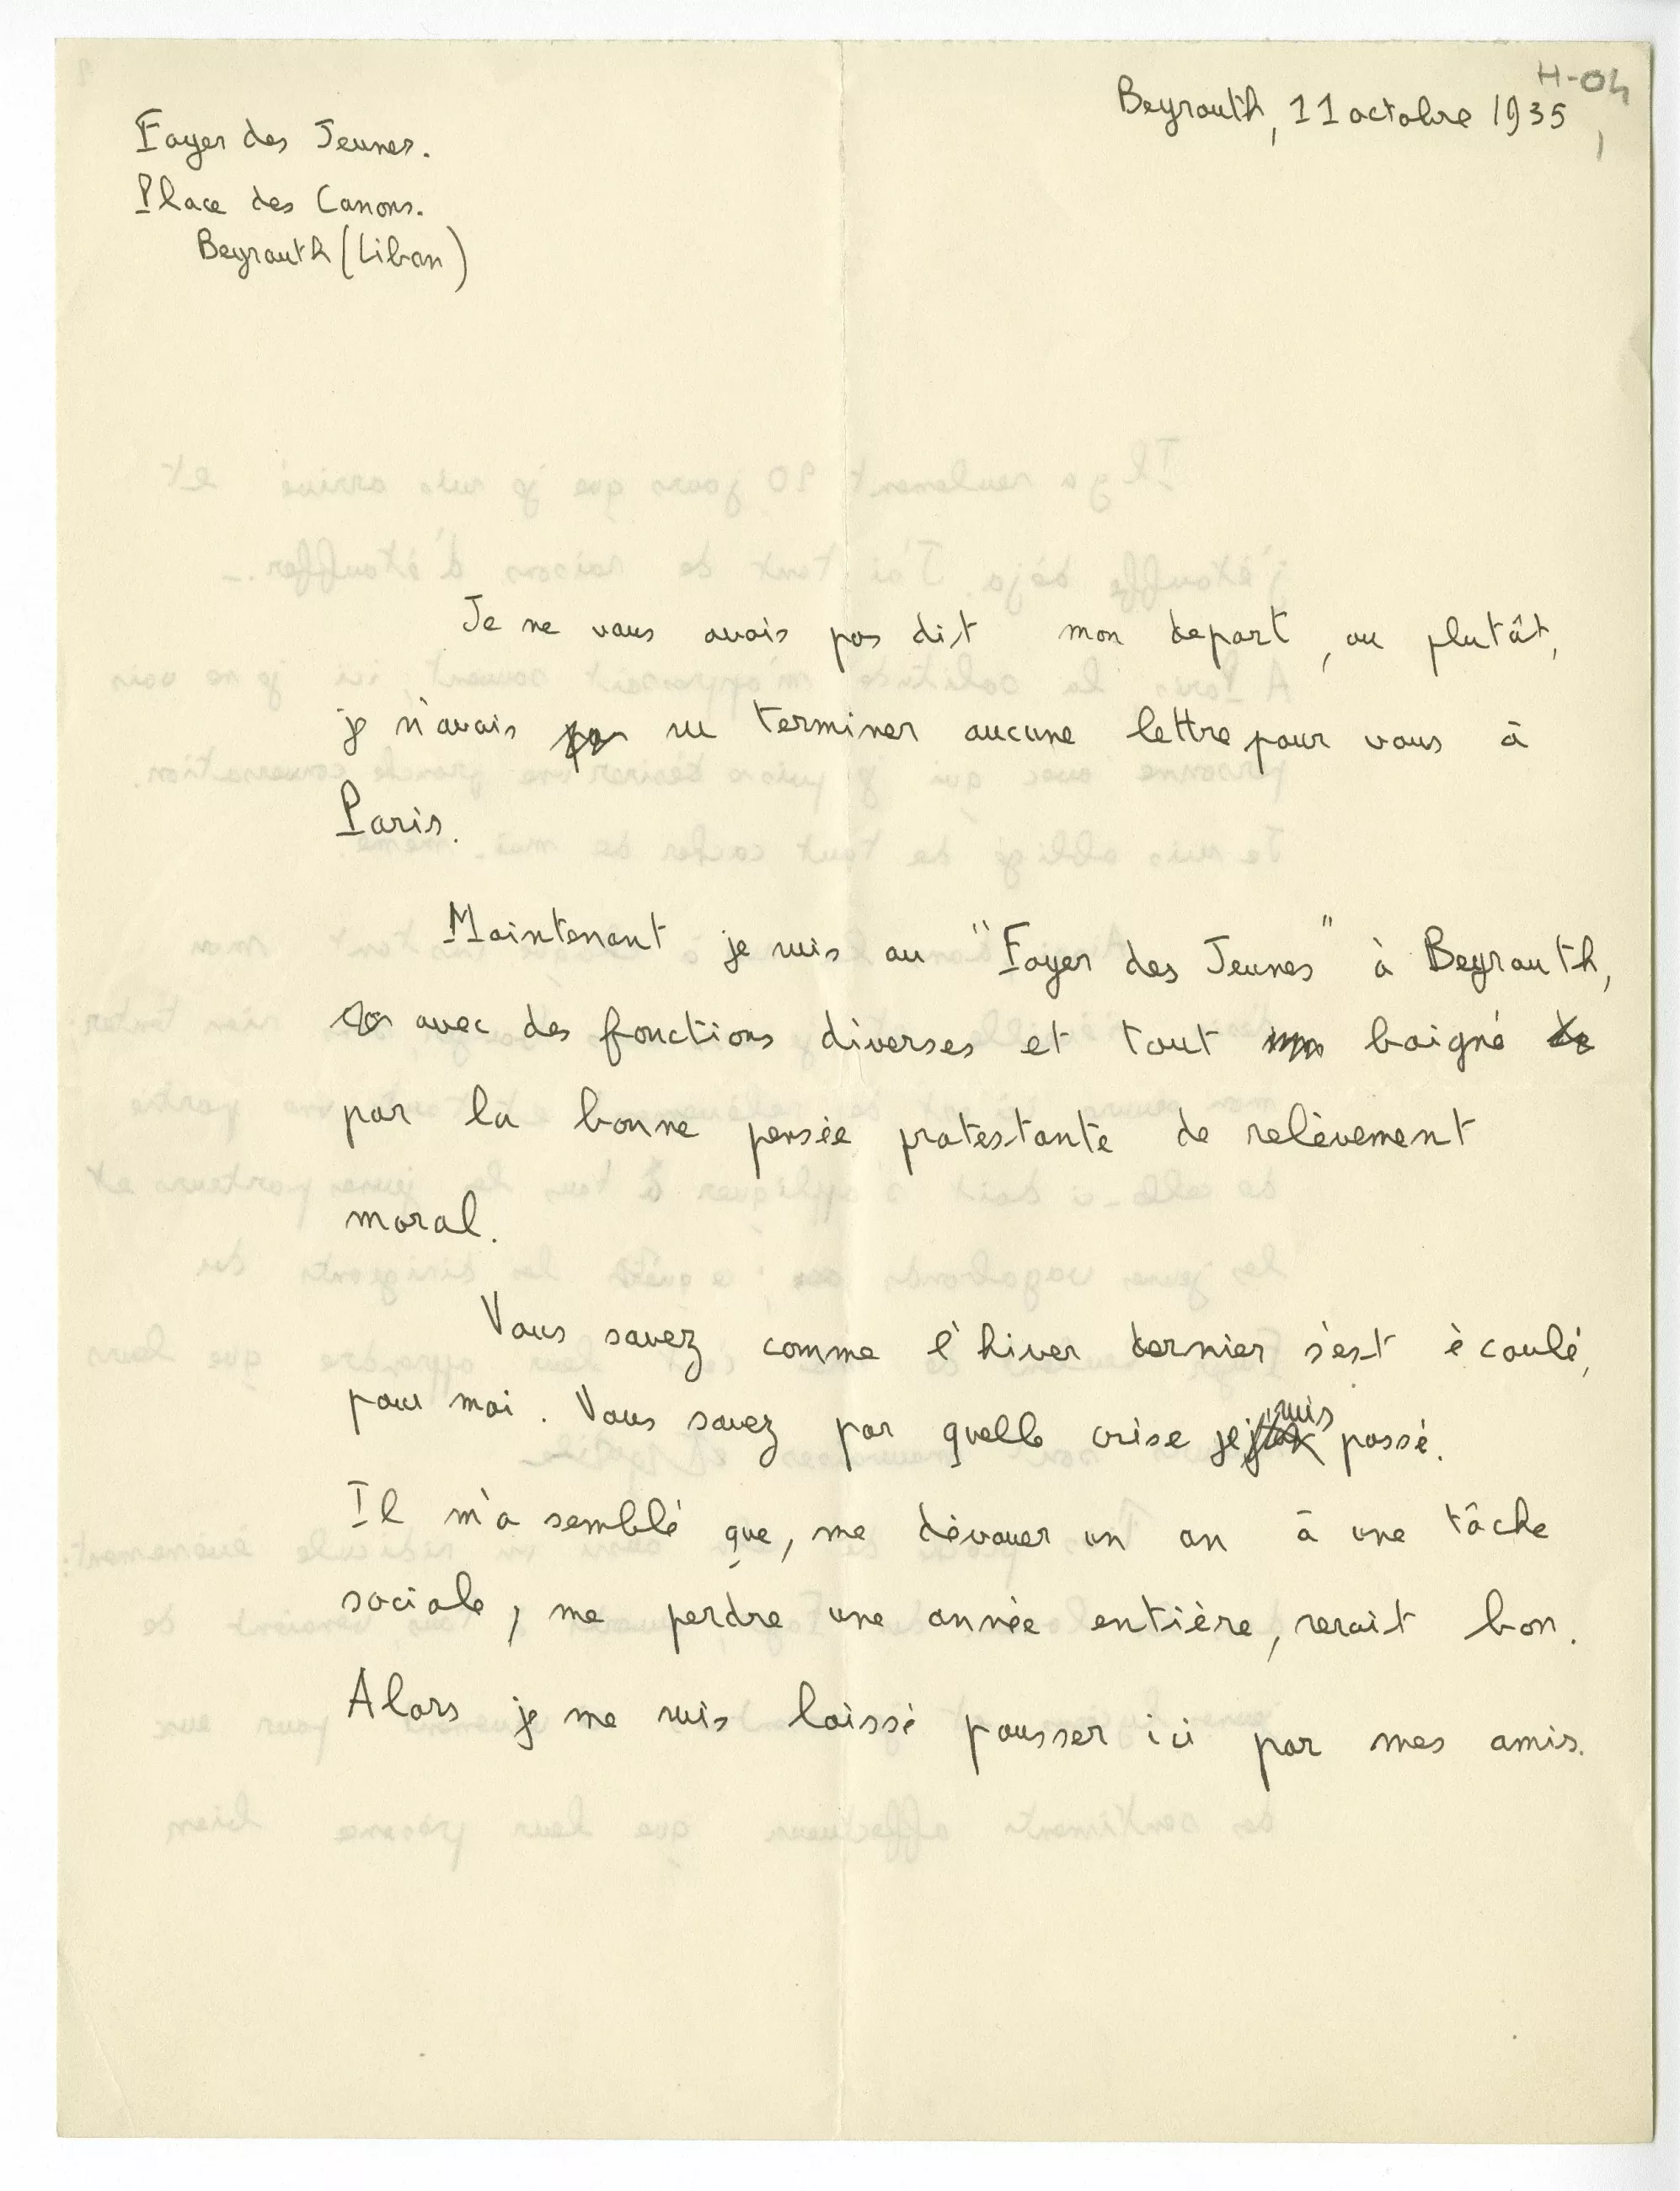 H-04
1
Beyrouth, 11 octobre 1935
Foyer des Jeunes.
Place des Canons.
Beyrouth (Liban)
Je ne vous avais pas dit mon depart, ou plutôt,
je n'avais su terminer aucune lettre pour vous à
Paris.
Maintenant je suis au "Foyer des Jeunes" à Beyrouth,
avec des fonctions diverses et tout baigné de
par la bonne pensée protestante de relèvement
moral.
Vous savez comme l'hiver dernier s'est écoulé,
pour moi. Vous savez par quelle crise je suis passé.
Il m'a semblé que, me dévouer un an à une tâche
sociale, me perdre une année entière, serait bon.
Alors je me suis laissé pousser ici par mes amis.